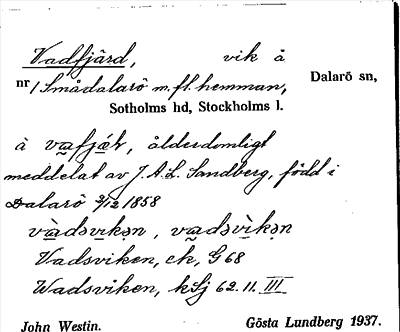 Vadfjärd, vik å
nr 1 Smådalarö m. fl. hemman, Dalarö sn,
Sotholms hd, Stockholms l.
à vafjä́ṭ, ålderdomligt
meddelat av J. A. L. Sandberg, född i
Dalarö 9/12 1858
vàdsvikən, vadsvìkən
Vadsviken, ek, G 68
Wadsviken, kSj 62. 11. III
John Westin. Gösta Lundberg 1937.